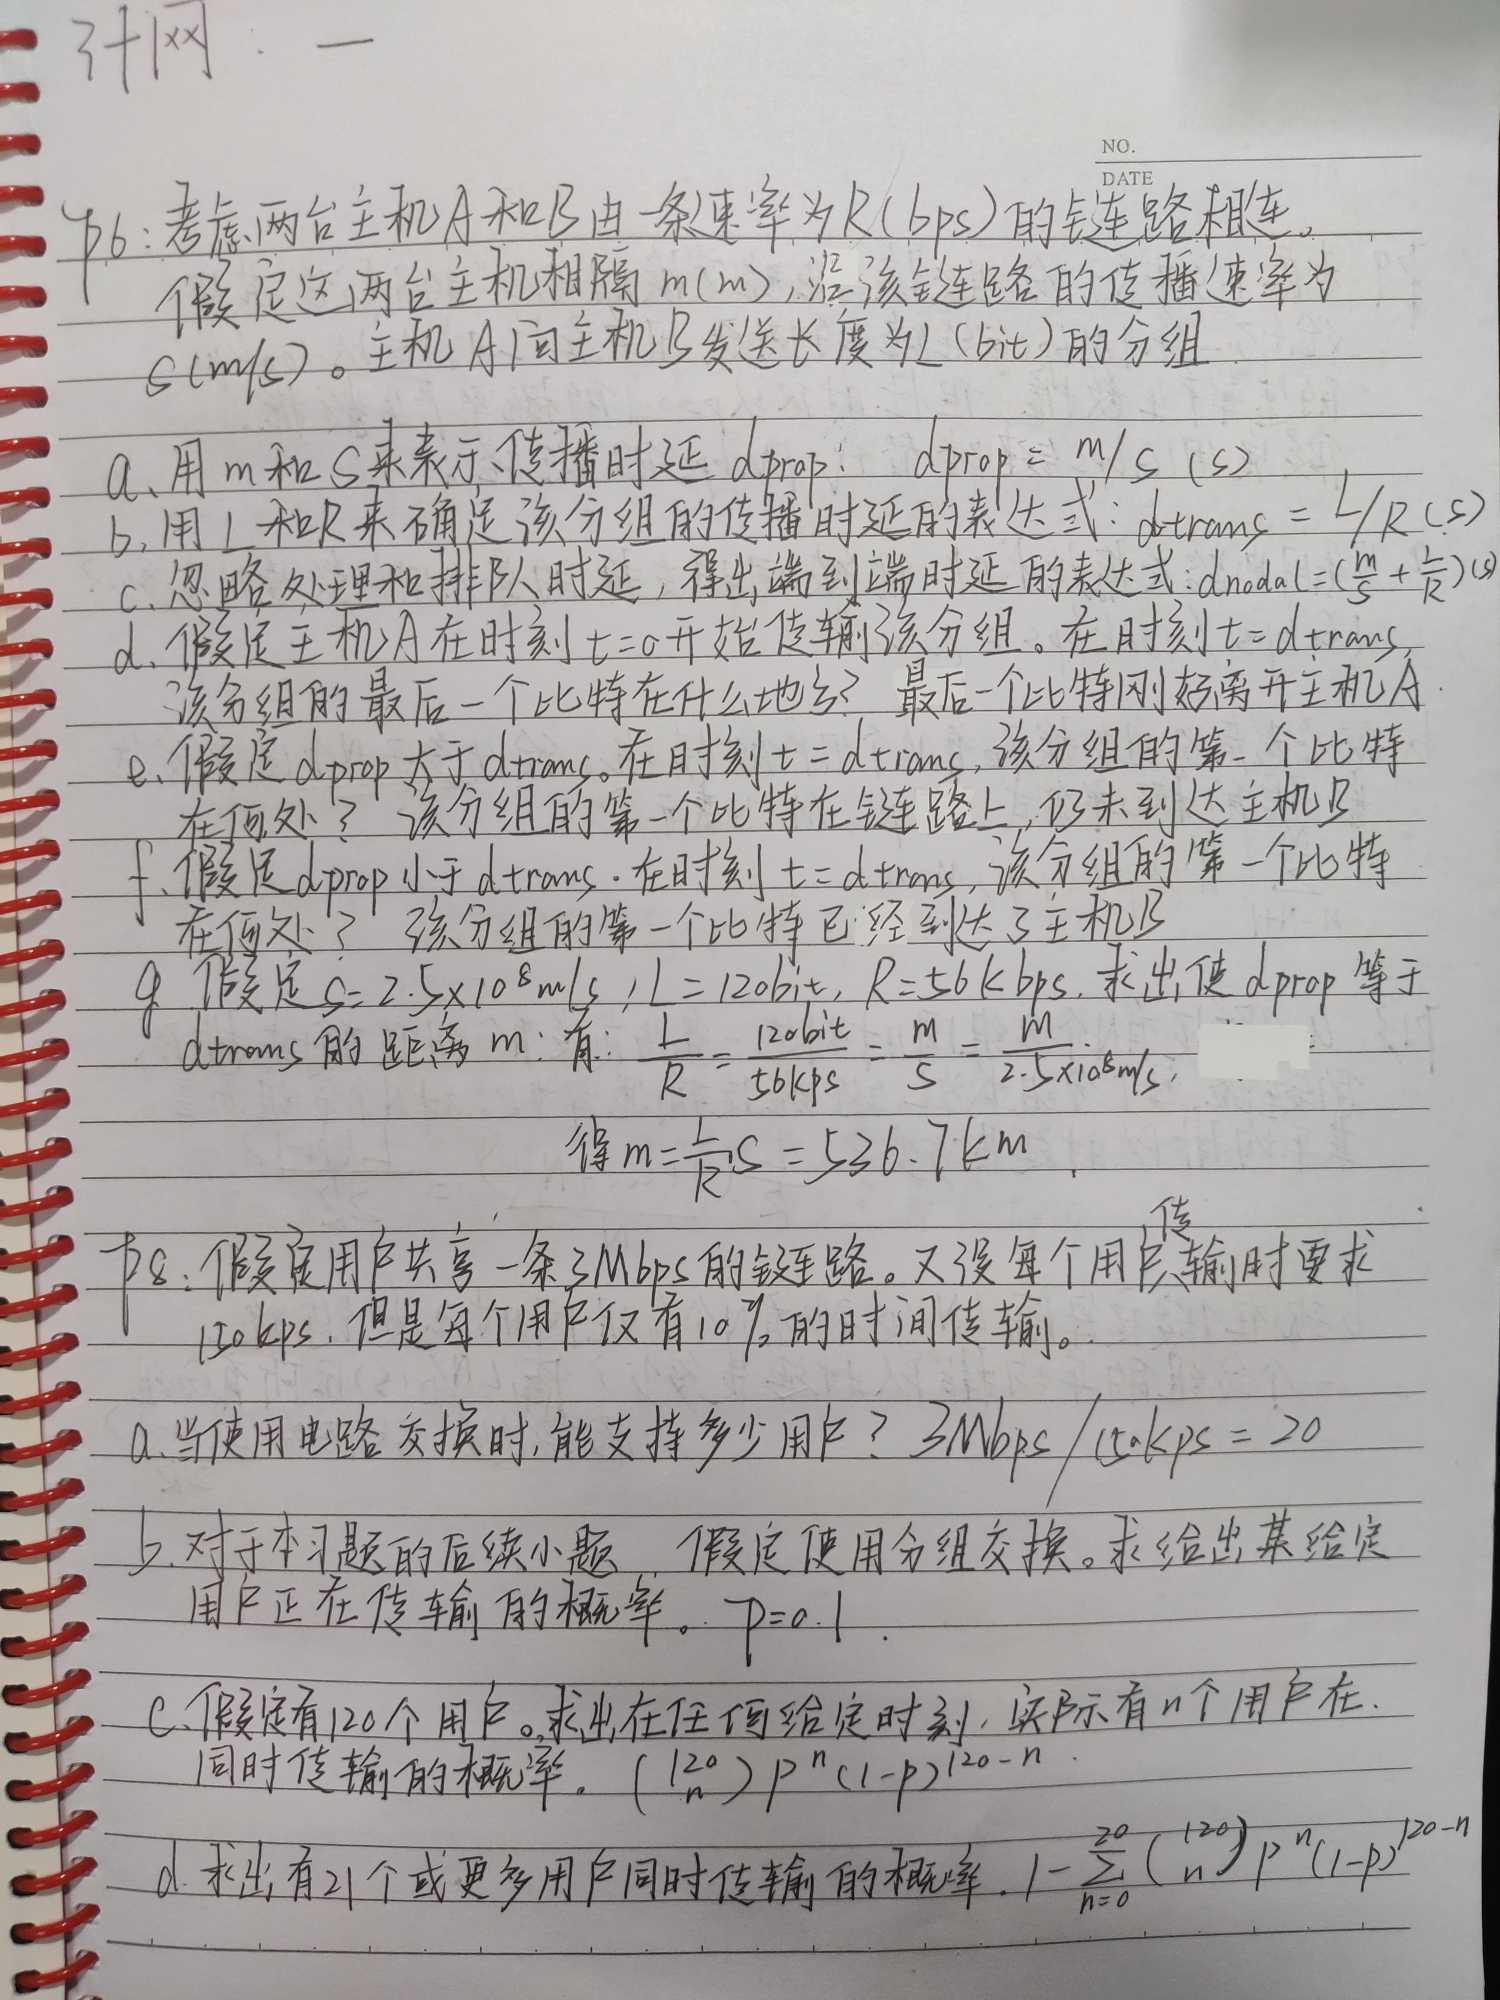 计网：一
NO.
DATE
P6：考虑两台主机A和B由一条速率为R(bps)的链路相连。
假定这两台主机相隔m(m)，沿该链路的传播速率为
s(m/s)。主机A向主机B发送长度为L(bit)的分组
a、用m和s来表示传播时延dprop： dprop = m/s (s)
b、用L和R来确定该分组的传播时延的表达式：dtrans = L/R (s)
c、忽略处理和排队时延，得出端到端时延的表达式：dnodal=(m/s + L/R)(s)
d、假定主机A在时刻t=0开始传输该分组。在时刻t=dtrans，
该分组的最后一个比特在什么地方？ 最后一个比特刚好离开主机A.
e、假定dprop大于dtrans。在时刻t=dtrans，该分组的第一个比特
在何处？ 该分组的第一个比特在链路上，仍未到达主机B
f、假定dprop小于dtrans.在时刻t=dtrans，该分组的第一个比特
在何处？ 该分组的第一个比特已经到达了主机B
g 假定s=2.5×10⁸m/s，L=120bit，R=56kbps.求出使dprop等于
dtrans的距离m：有：L/R = 120bit/56kps = m/s = m/2.5×10⁸m/s，
得m=L/R·S=536.7km
P8：假定用户共享一条3Mbps的链路。又设每个用户传输时要求
150kps，但是每个用户仅有10%的时间传输。
a.当使用电路交换时，能支持多少用户？ 3Mbps/150kps=20
b.对于本习题的后续小题，假定使用分组交换。求给出某给定
用户正在传输的概率。 P=0.1.
c.假定有120个用户。求出在任何给定时刻，实际有n个用户在
同时传输的概率。 (120 n) pⁿ(1-p)¹²⁰⁻ⁿ.
d.求出有21个或更多用户同时传输的概率. 1-∑(n=0, 20) (120 n) pⁿ(1-p)¹²⁰⁻ⁿ